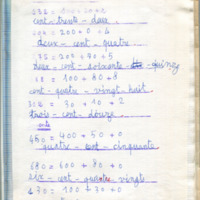 cent-trente-deux
204 = 200 + 0 + 4
deux-cent-quatre
275 = 200 + 70 + 5
deux-cent-soixante-quinze
188 = 100 + 80 + 8
cent-quatre-vingt huit
312 = 30 + 10 + 2
trois-cent-douze
450 = 400 + 50 + 0
quatre-cent-cinquante
680 = 600 + 80 + 0
six-cent-quatre-vingts
130 = 100 + 30 + 0